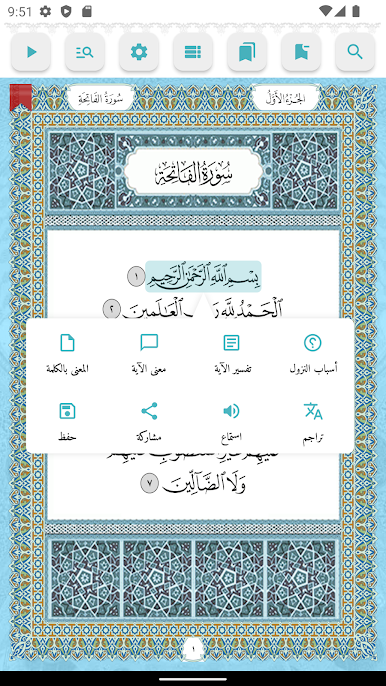 9:51
سُورَةُ الفَاتِحَةِ
الجُزءُ الأَوَّلُ
سُورَةُ الفَاتِحَةِ
بِسْمِ ٱللَّهِ ٱلرَّحْمَٰنِ ٱلرَّحِيمِ ١
ٱلْحَمْدُ لِلَّهِ ٱلْعَٰلَمِينَ ٢
أسباب النزول
تفسير الآية
معنى الآية
المعنى بالكلمة
تراجم
استماع
مشاركة
حفظ
وَلَا ٱلضَّآلِّينَ ٧
١